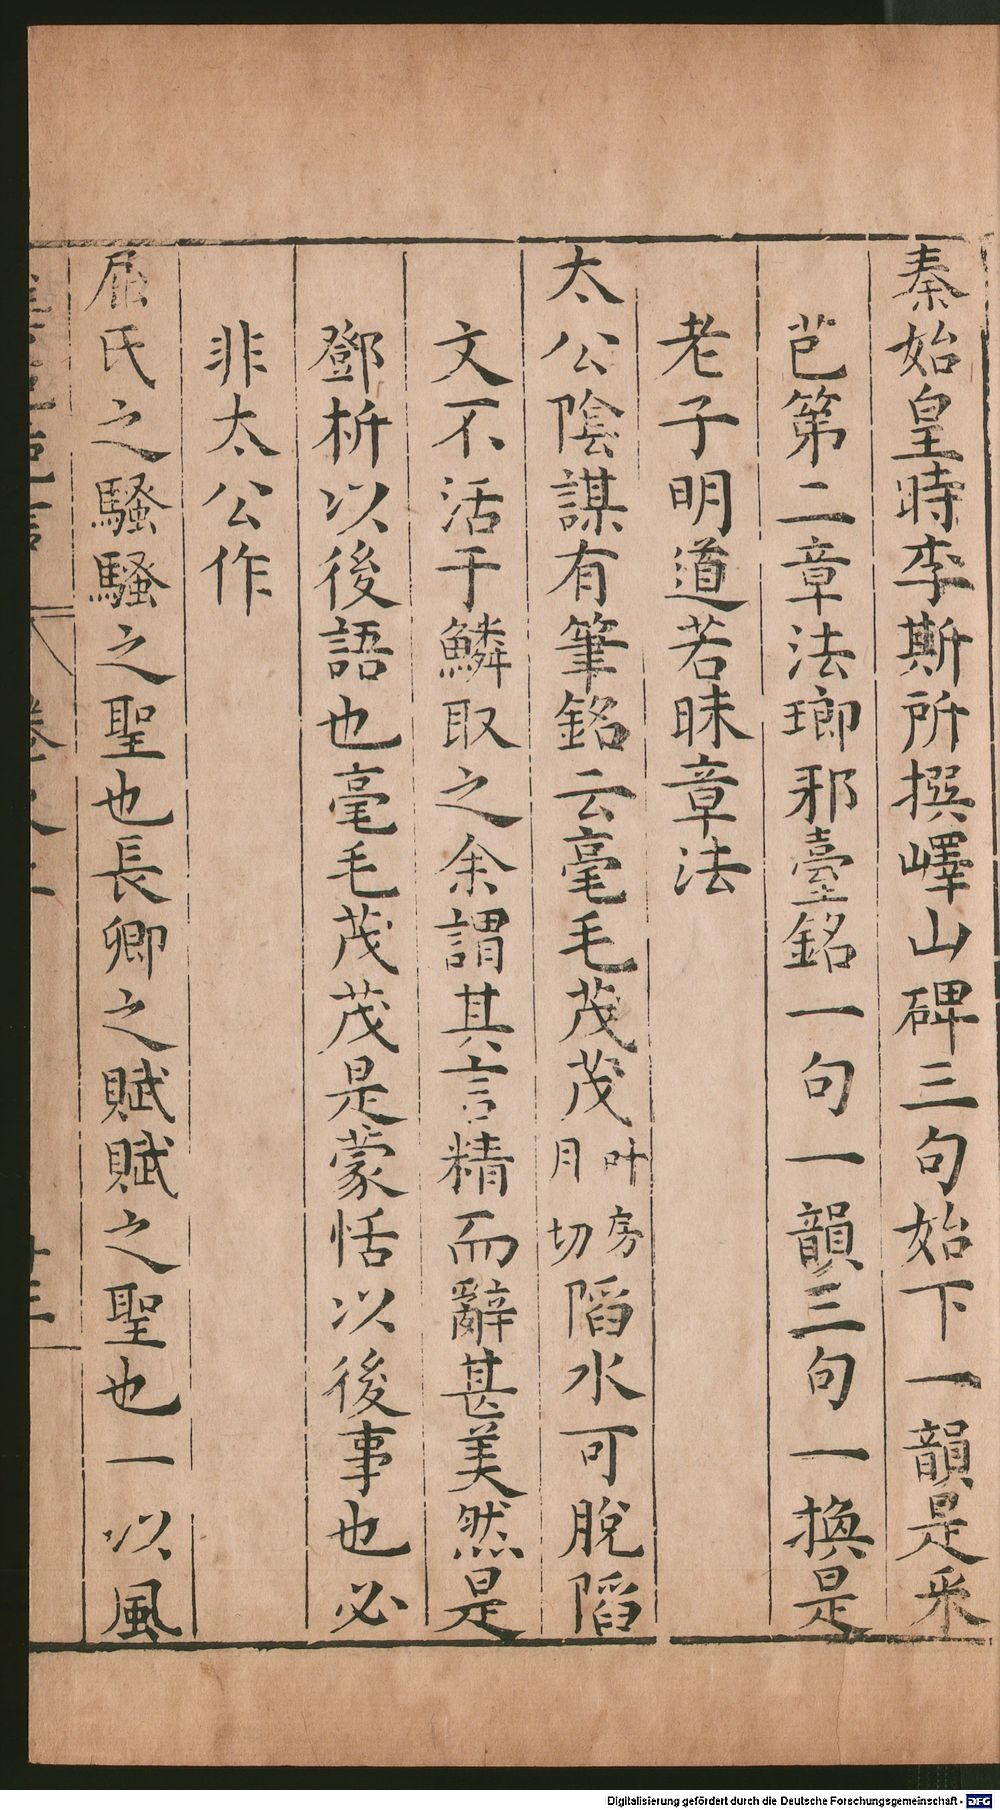 秦始皇時李斯所撰嶧山碑三句始下一韻是采
芑第二章法瑯邪臺銘一句一韻三句一換是
老子明道若昧章法
太公陰謀有筆銘云毫毛茂茂叶房月切陷水可脫陷
文不活于鱗取之余謂其言精而辭甚美然是
鄧析以後語也毫毛茂茂是蒙恬以後事也必
非太公作
屈氏之騷騷之聖也長卿之賦賦之聖也一以風
Digitalisierung gefördert durch die Deutsche Forschungsgemeinschaft - DFG